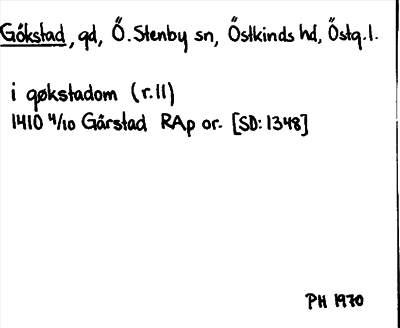 Gökstad, gd, Ö. Stenby sn, Östkinds hd, Östg. l.
i gøkstadom (r. 11)
1410 4/10 Gårstad RAp or. [SD: 1348]
PH 1970